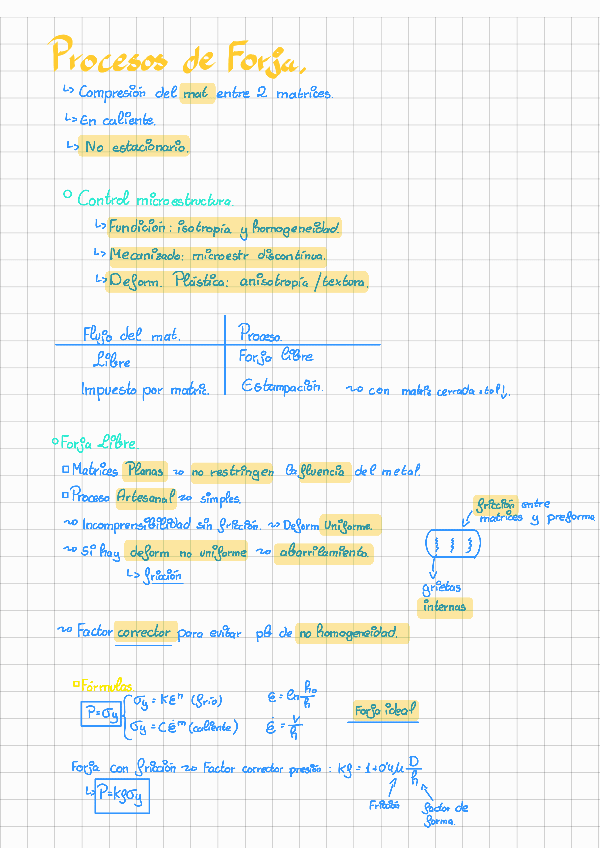 Procesos de Forja.
↳ Compresión del mat entre 2 matrices.
↳ En caliente.
↳ No estacionario.
Control microestructura.
↳ Fundición: isotropía y homogeneidad.
↳ Mecanizado: microestr discontinua.
↳ Deform. Plástica: anisotropía / textura.
Flujo del mat. Proceso.
Libre Forja libre
Impuesto por matric. Estampación. ~ con matriz cerrada ↓.
Forja Libre.
Matrices Planas ~ no restringen la fluencia del metal.
Proceso Artesanal ~ simples.
fricción entre
matrices y preforma
~ Incomprensibilidad sin fricción. ~ Deform Uniforme.
~ Si hay deform no uniforme ~ abarrilamiento.
↳ fricción
grietas
internas
~ Factor corrector para evitar pb de no homogeneidad.
Fórmulas
P=σy
σy = Kεⁿ (frío) ε = ln h₀/h
Forja ideal
σy = Cε̇ᵐ (caliente) ε̇ = V/h
Forja con fricción ~ Factor corrector presión: Kf = 1+0'4μ D/h
↳ P=Kfσy
Fricción
factor de
forma.